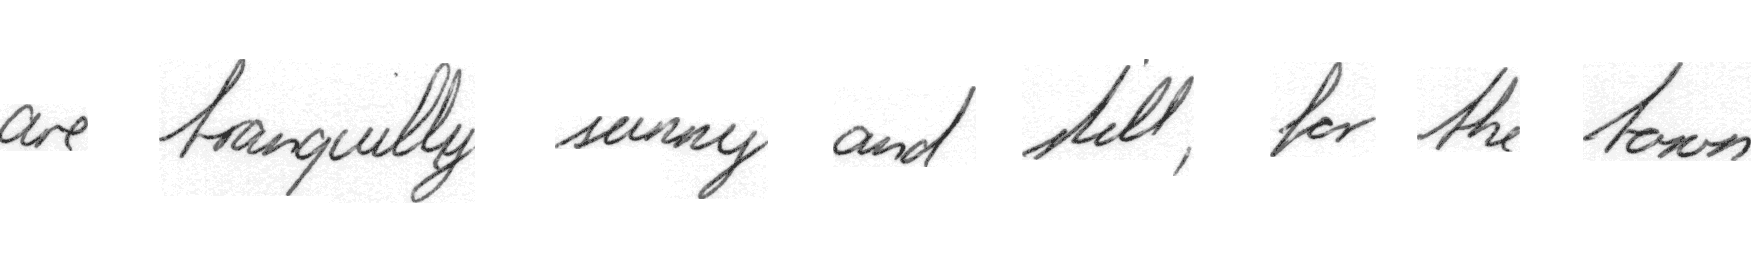 are tranquilly sunny and still, for the town